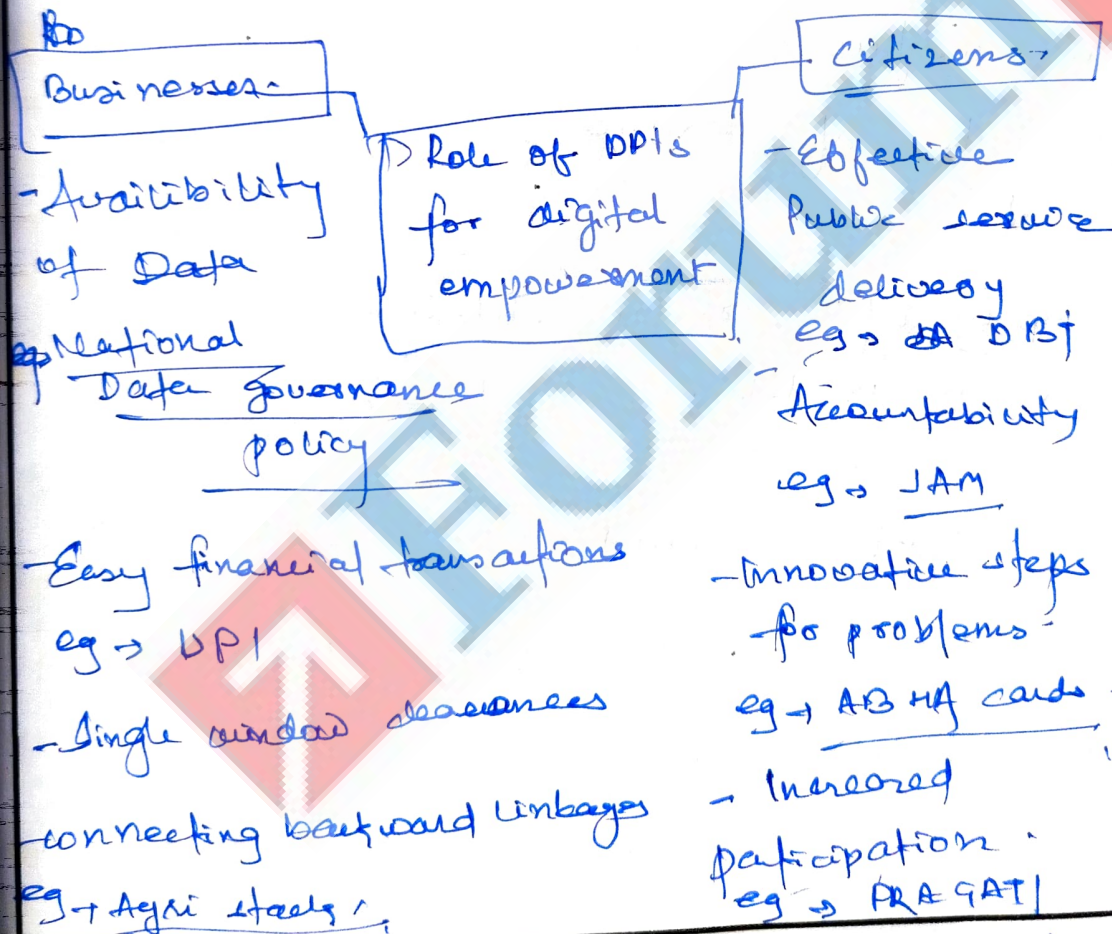 Businesses-
- Availibility
of Data
eg National
Data governance
policy
- Easy financial transactions
eg → UPI
- Single window clearances
- connecting backward linkages
eg → Agri stacks
Role of DPIs
for digital
empowerment
Citizens-
- Effective
Public service
delivery
eg → DBT
- Accountability
eg → JAM
- Innovative steps
for problems
eg → ABHA cards
- Increased
participation
eg → PRAGATI
Forum